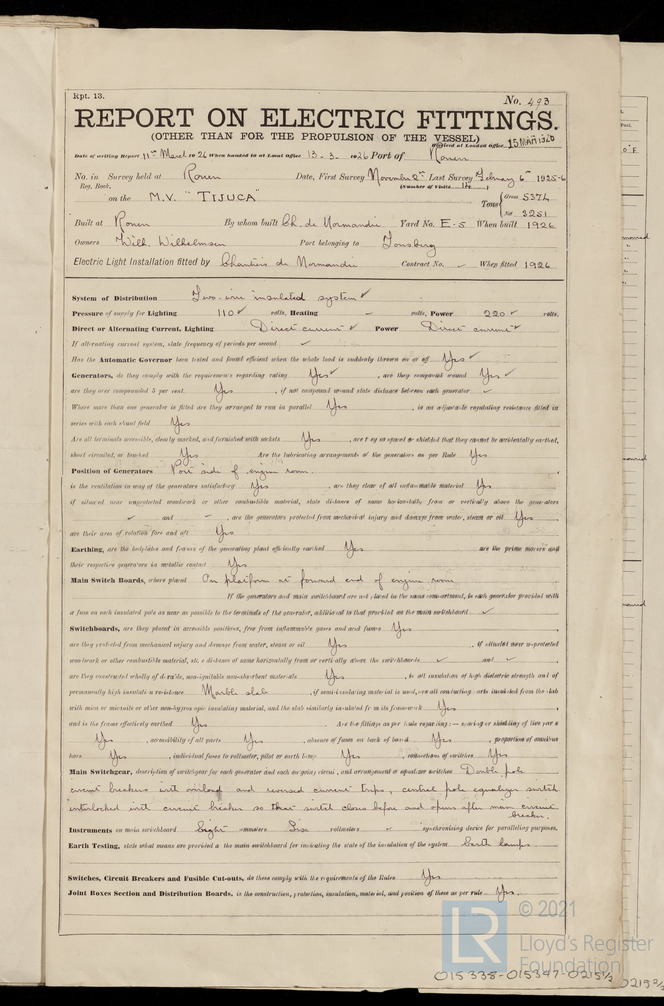 Rpt. 13.
No. 493
REPORT ON ELECTRIC FITTINGS.
(OTHER THAN FOR THE PROPULSION OF THE VESSEL)
Received at London Office 15 MAR 1926
Date of writing Report 11th March 1926 When handed in at Local Office 13.3.1926 Port of Rouen
No. in Survey held at Rouen Date, First Survey November 2nd Last Survey February 6th 1925-6
Reg. Book. (Number of Visits)
on the M.V. "TIJUCA" Tons { Gross 5374
Net 3251
Built at Rouen By whom built Ch. de Normandie Yard No. E-5 When built 1926
Owners Wilh. Wilhelmsen Port belonging to Tonsberg
Electric Light Installation fitted by Chantiers de Normandie Contract No. - When fitted 1926
System of Distribution Two-wire insulated system ✓
Pressure of supply for Lighting 110 ✓ volts, Heating - volts, Power 220 ✓ volts.
Direct or Alternating Current, Lighting Direct current ✓ Power Direct current ✓
If alternating current system, state frequency of periods per second ✓
Has the Automatic Governor been tested and found efficient when the whole load is suddenly thrown on or off Yes ✓
Generators, do they comply with the requirements regarding rating Yes ✓, are they compound wound Yes ✓
are they over compounded 5 per cent. Yes, if not compound wound state distance between each generator ✓
Where more than one generator is fitted are they arranged to run in parallel Yes, is an adjustable regulating resistance fitted in
series with each shunt field Yes
Are all terminals accessible, clearly marked, and furnished with sockets Yes, are they so spaced or shielded that they cannot be accidentally earthed,
short circuited, or touched Yes Are the lubricating arrangements of the generators as per Rule Yes
Position of Generators Port side of engine room.
is the ventilation in way of the generators satisfactory Yes, are they clear of all inflammable material Yes
if situated near unprotected woodwork or other combustible material, state distance of same horizontally from or vertically above the generators
✓ and -, are the generators protected from mechanical injury and damage from water, steam or oil Yes
are their axes of rotation fore and aft Yes
Earthing, are the bedplates and frames of the generating plant efficiently earthed Yes are the prime movers and
their respective generators in metallic contact Yes
Main Switch Boards, where placed On platform at forward end of engine room
If the generators and main switchboard are not placed in the same compartment, is each generator provided with
a fuse on each insulated pole as near as possible to the terminals of the generator, additional to that provided on the main switchboard ✓
Switchboards, are they placed in accessible positions, free from inflammable gases and acid fumes Yes
are they protected from mechanical injury and damage from water, steam or oil Yes, if situated near unprotected
woodwork or other combustible material, state distance of same horizontally from or vertically above the switchboards ✓ and ✓
are they constructed wholly of durable, non-ignitable non-absorbent materials Yes, is all insulation of high dielectric strength and of
permanently high insulation resistance Marble slab, if semi-insulating material is used, are all conducting parts insulated from the slab
with mica or micanite or other non-hygroscopic insulating material, and the slab similarly insulated from its framework Yes
and is the frame effectively earthed Yes Are the fittings as per Rule regarding:- spacing or shielding of live parts
Yes, accessibility of all parts Yes, absence of fuses on back of board Yes, proportion of omnibus
bars Yes, individual fuses to voltmeter, pilot or earth lamp Yes, connections of switches Yes
Main Switchgear, description of switchgear for each generator and each outgoing circuit, and arrangement of equaliser switches Double pole
circuit breakers with overload and reversed current trips, central pole equalizer switch
interlocked with circuit breaker so that switch closes before and opens after main circuit
breaker.
Instruments on main switchboard Eight ammeters Six voltmeters ✓ synchronising device for paralleling purposes.
Earth Testing, state what means are provided at the main switchboard for indicating the state of the insulation of the system Earth lamps
Switches, Circuit Breakers and Fusible Cut-outs, do these comply with the requirements of the Rules Yes
Joint Boxes Section and Distribution Boards, is the construction, protection, insulation, material, and position of these as per rule Yes.
© 2021
LR
Lloyd's Register
Foundation
015338-015347-0215½